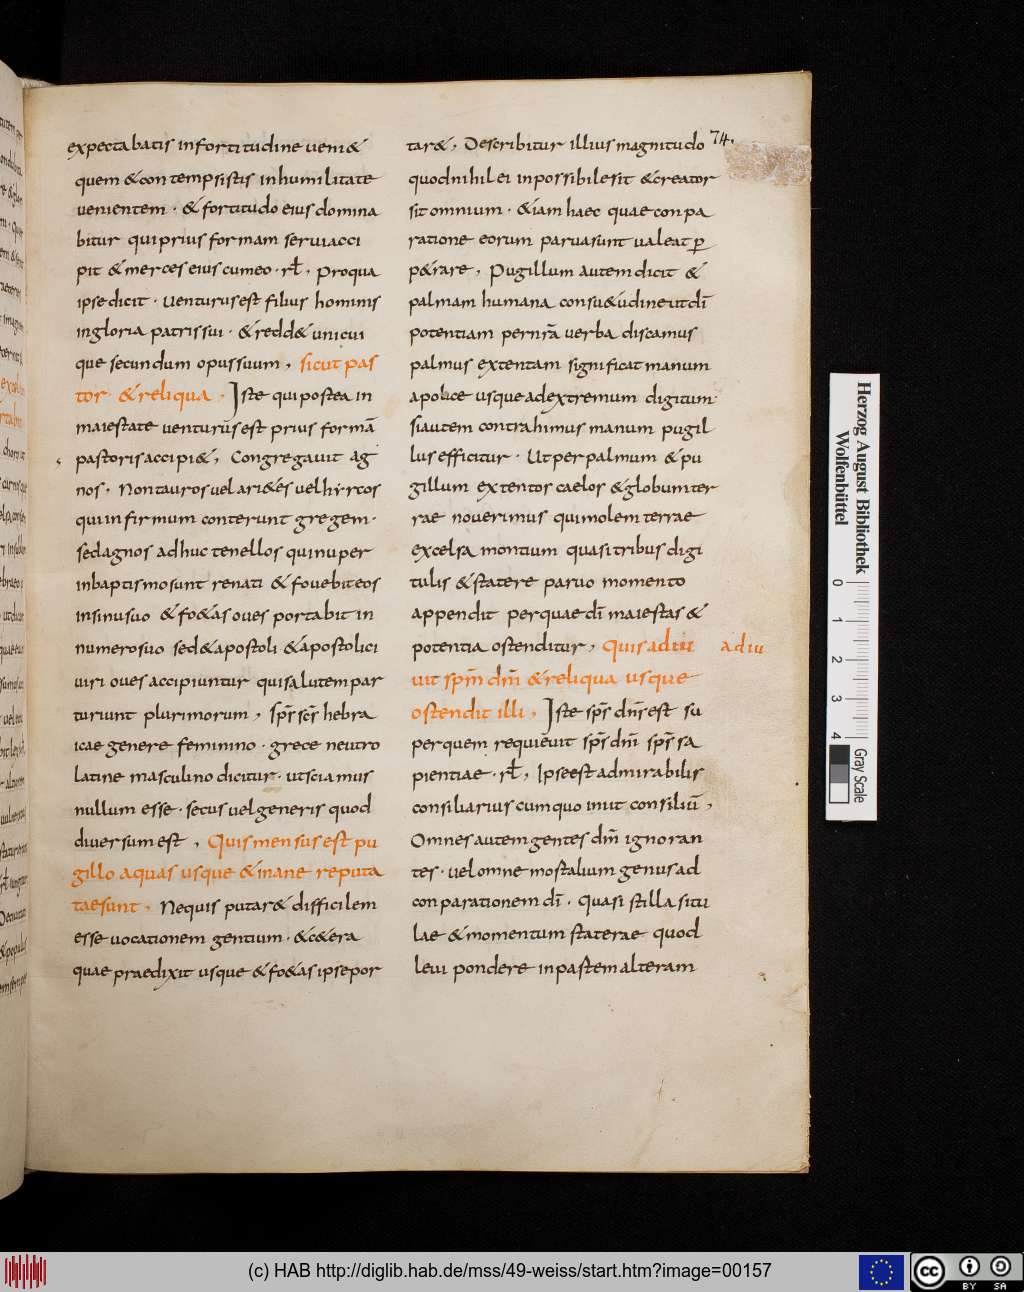 expectabatis infortitudine ueni&
quem &contempsistis inhumilitate
uenientem · & fortitudo eius domina
bitur qui prius formam serui acci
pit & merces eius cum eo · rł · Propua
ipse dicit · Uenturus est filius hominis
in gloria patris sui · & redd& unicui
que secundum opus suum , sicut pas
tor · & reliqua · Iste qui postea in
maiestate uenturus est prius formā
pastoris accipi&, Congregauit ag
nos · Non tauros uel ari&es uel hyrcos
qui infirmum conterunt gregem ·
sed agnos adhuc tenellos qui nuper
in baptismo sunt renati & fouebit eos
in sinu suo & fo&as oues portabit in
numero suo sed & apostoli & apostolici
uiri oues accipiuntur qui salutem par
turiunt plurimorum , sp̄s sc̄s hebra
icae genere feminino · grece neutro
latine masculino dicitur · ut sciamus
nullum esse · secus uel generis quod
diuersum est , Quis mensus est pu
gillo aquas usque & inane reputa
tae sunt , Ne quis putar& difficilem
esse uocationem gentium · & c&era
quae praedixit usque & fo&as ipse por
tar& , Describitur illius magnitudo
quod nihil ei inpossibile sit & creator
sit omnium · & iam haec quae conpa
ratione eorum parua sunt ualeat p̄
p&rare , Pugillum autem dicit &
palmam humana consu&udine ut dī
potentiam per nr̄a uerba discamus
palmus extentam significat manum
a police usque ad extremum digitum·
si autem contrahimus manum pugil
lus efficitur · Ut per palmum & pu
gillum extentos caelos & globum ter
rae nouerimus qui molem terrae
excelsa montium quasi tribus digi
tulis & statere paruo momento
appendit per quae dī maiestas &
potentia ostenditur , Quis adiu adiu
uit sp̄m dn̄i & reliqua usque
ostendit illi , Iste sp̄s dn̄s est su
per quem requieuit sp̄s dn̄i sp̄s sa
pientiae · rł , Ipse est admirabilis
consiliarius cum quo iniit consiliū ,
Omnes autem gentes dm̄ ignoran
tes · uel omne mortalium genus ad
conparationem dī · quasi stilla situ
lae & momentum staterae quod
leui pondere in partem alteram
74.
Herzog August Bibliothek
Wolfenbüttel
0 1 2 3 4
Gray Scale
(c) HAB http://diglib.hab.de/mss/49-weiss/start.htm?image=00157
cc BY SA